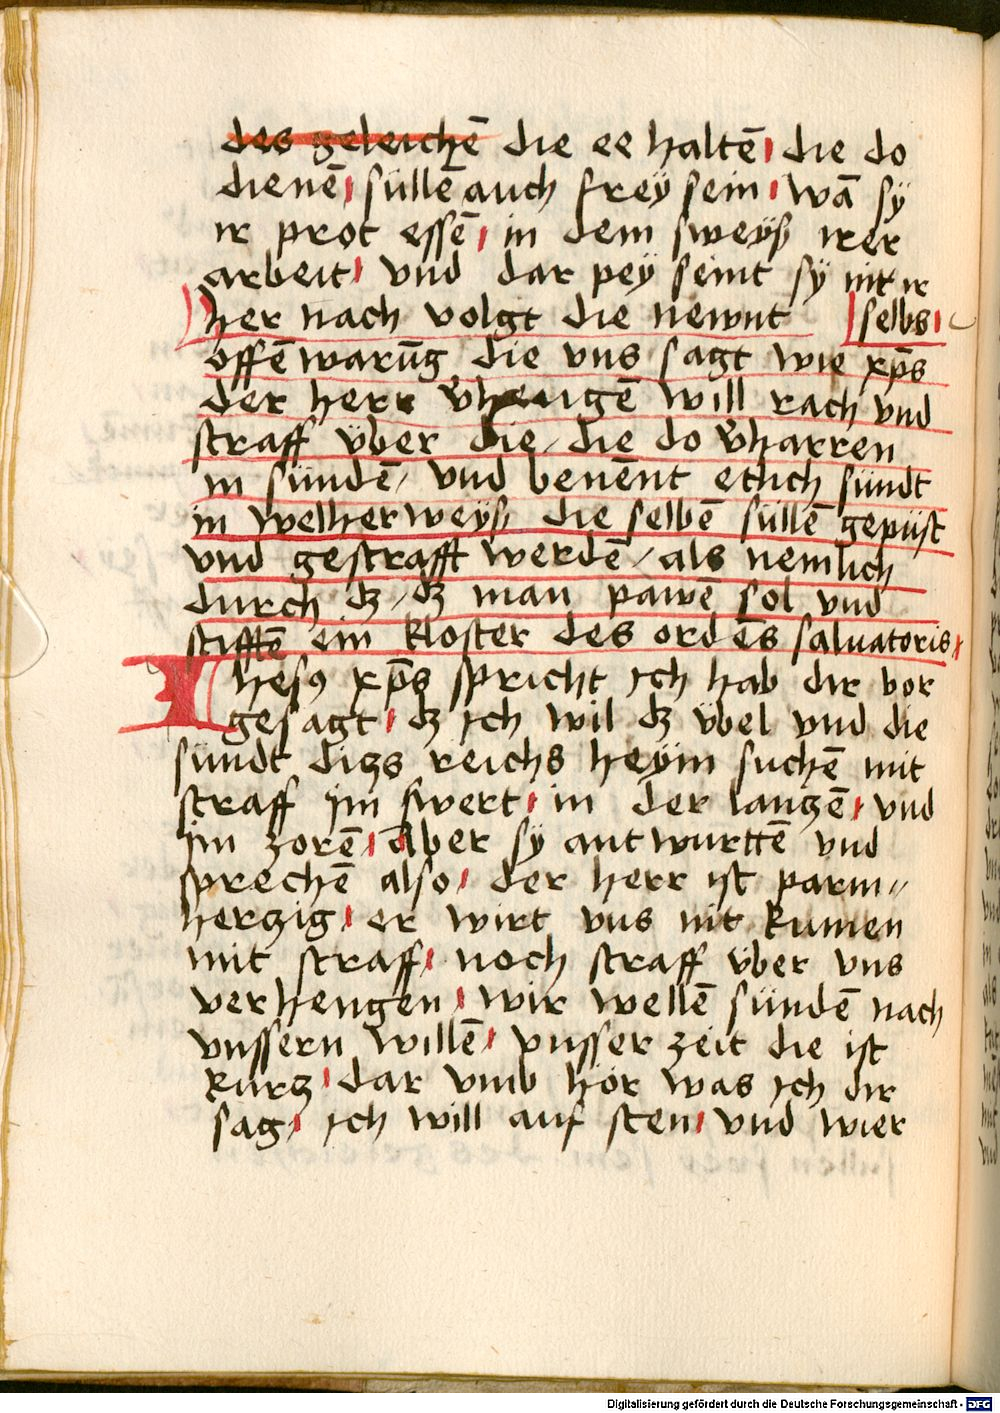 des geleichē die ee haltē die do
dienē süllē auch freÿ sein wā sÿ
ir prot essē in dem sweÿß irer
arbeit vnd dar peÿ seint sÿ nit ir
selbs
her nach volgt die newnt
offēwarūg die vns sagt wie xp̄s
der herr v̄hengē will rach vnd
straff über die / die do v̄harren
in sündē / vnd benēnt etlich sündt
in welher weÿß die selbē süllē gepüst
vnd gestrafft werdē / als nemlich
durch dz / dz man pawē sol vnd
stifftē ein kloster des ordēs saluatoris
Ihesꝰ xp̄s spricht ich hab dir vor
gesagt dz ich wil dz übel vnd die
sündt dizs reichs heÿm suchē mit
straff im swert in der lanzē vnd
im zorē Aber sÿ antwurttē vnd
sprechē also der herr ist parm〃
herzig er wirt vns nit kumen
mit straff noch straff über vns
verhengen wir wellē sündē nach
vnssern willē vnsser zeit die ist
kurz dar vmb hör was ich dir
sag ich will auf sten vnd wier
Digitalisierung gefördert durch die Deutsche Forschungsgemeinschaft - DFG